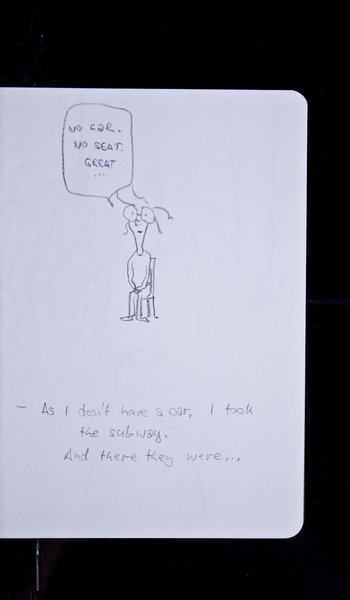 NO CAR.
NO SEAT.
GREAT
...
- As I don't have a car, I took
the subway.
And there they were...